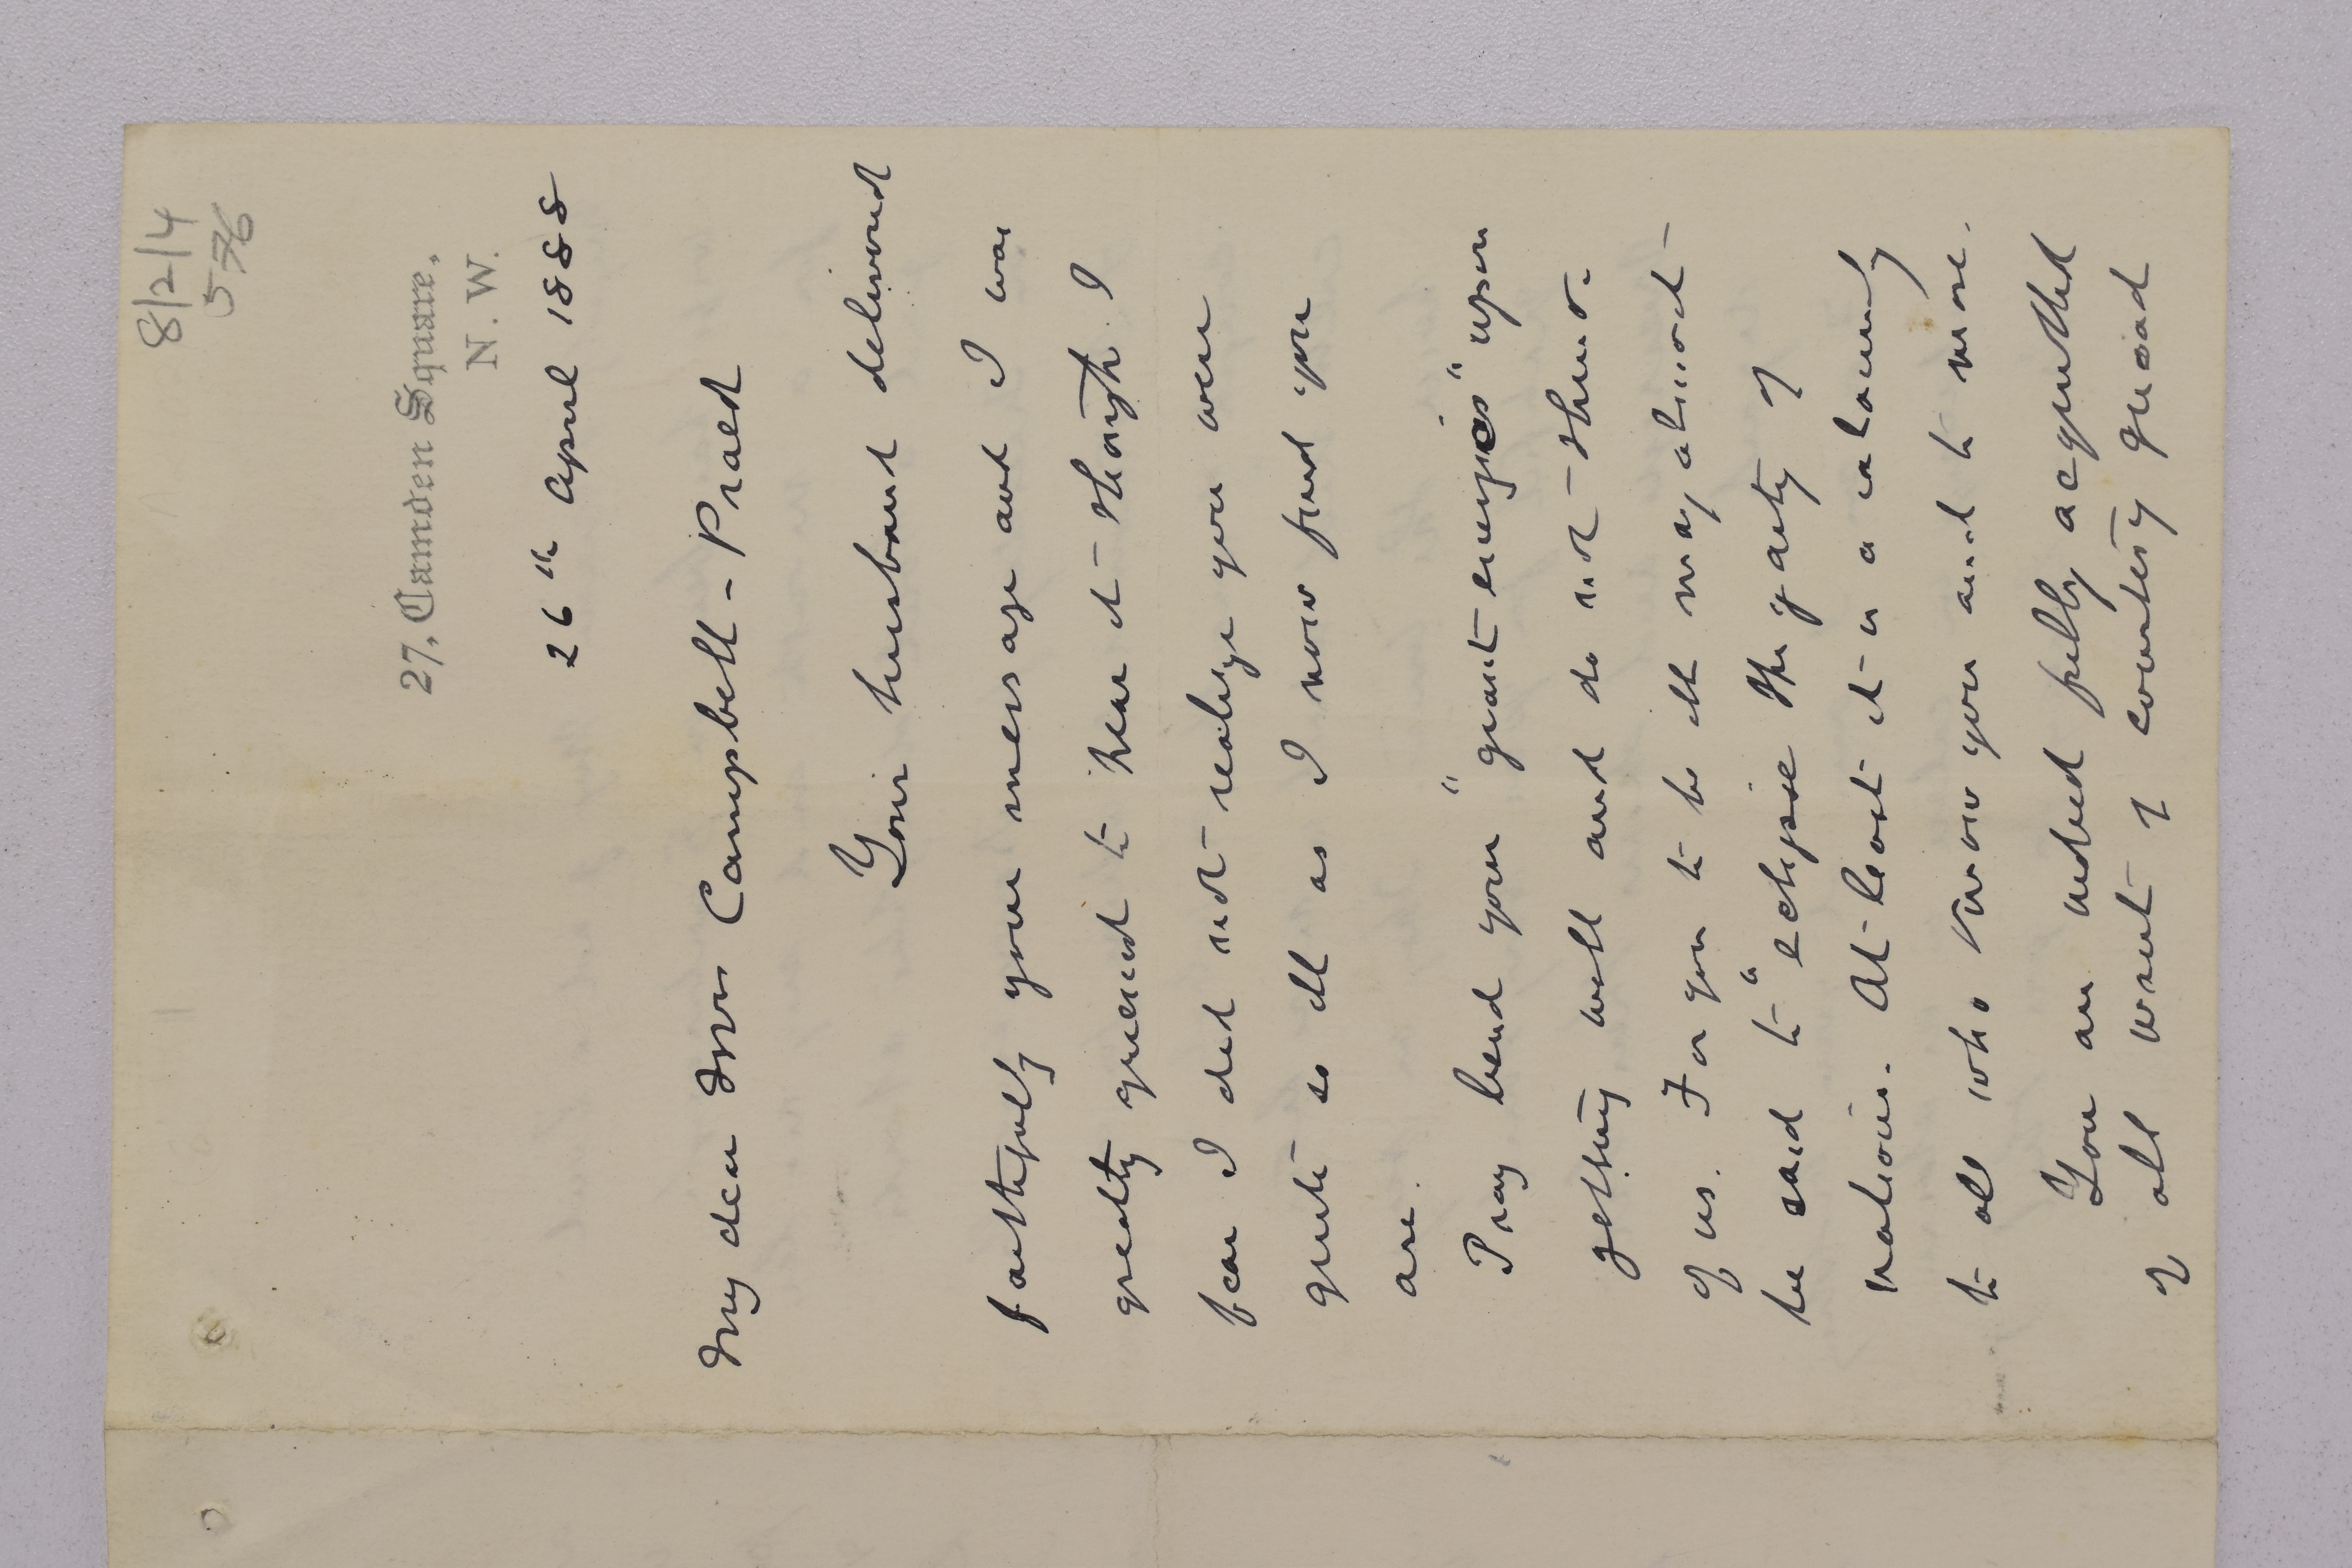 8/2/4
576
27, Camden Square,
N. W.
26th April 1888
My dear Mrs Campbell-Praed
Your husband delivered
faithfully your message and I was
greatly grieved to hear it - though I
fear I did not realize you were
quite so ill as I now find you
are.
Pray bend your "giant energies" upon
getting well and do not - think
of us. For you to be ill may almost -
be said to "eclipse the gaiety of
nations. At least it is a calamity
to all who know you and to more.
You are indeed fully acquitted
of all want of courtesy quoad